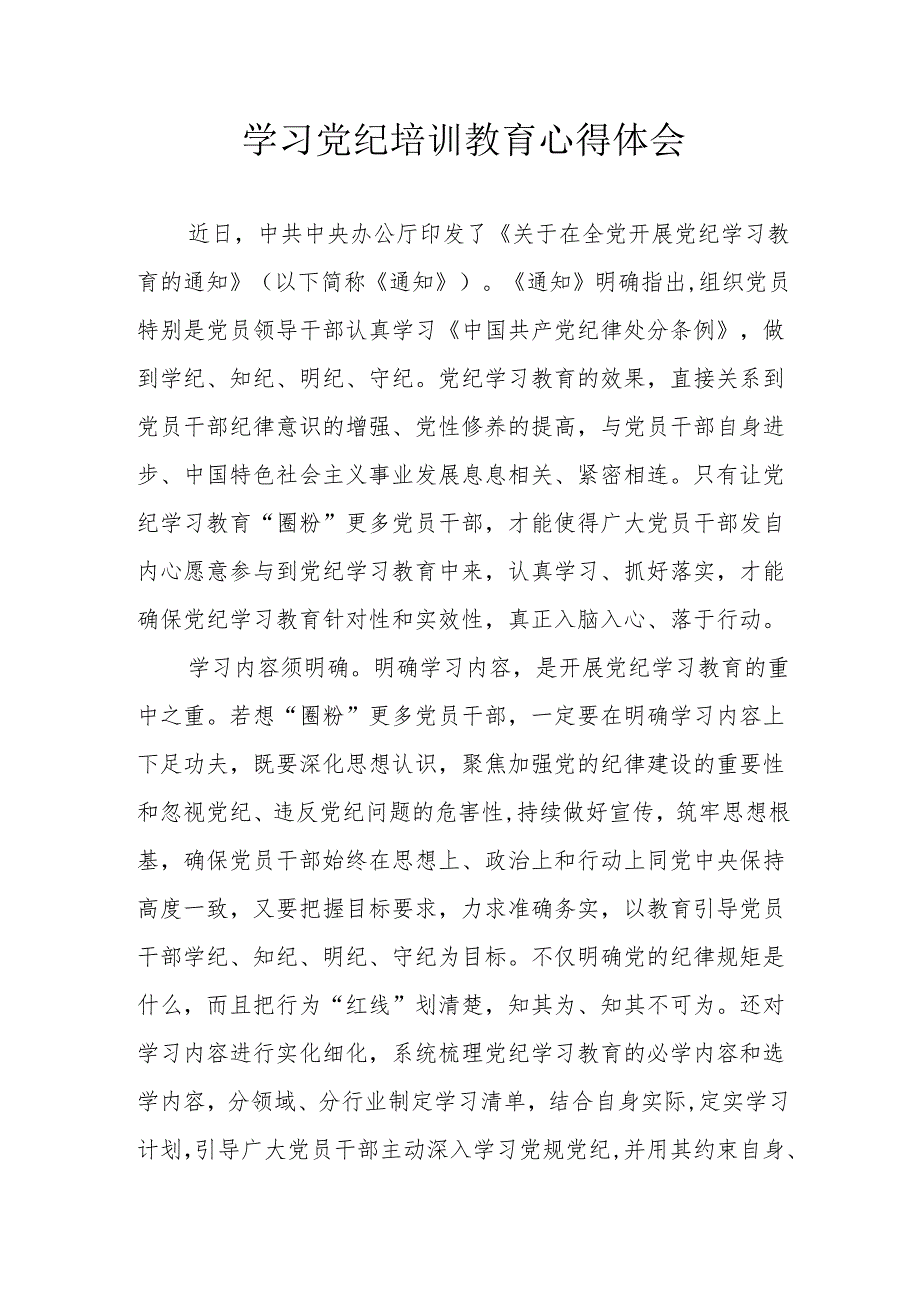 学习党纪培训教育心得体会
近日，中共中央办公厅印发了《关于在全党开展党纪学习教
育的通知》（以下简称《通知》）。《通知》明确指出,组织党员
特别是党员领导干部认真学习《中国共产党纪律处分条例》，做
到学纪、知纪、明纪、守纪。党纪学习教育的效果，直接关系到
党员干部纪律意识的增强、党性修养的提高，与党员干部自身进
步、中国特色社会主义事业发展息息相关、紧密相连。只有让党
纪学习教育“圈粉”更多党员干部，才能使得广大党员干部发自
内心愿意参与到党纪学习教育中来，认真学习、抓好落实，才能
确保党纪学习教育针对性和实效性，真正入脑入心、落于行动。
学习内容须明确。明确学习内容，是开展党纪学习教育的重
中之重。若想“圈粉”更多党员干部，一定要在明确学习内容上
下足功夫，既要深化思想认识，聚焦加强党的纪律建设的重要性
和忽视党纪、违反党纪问题的危害性,持续做好宣传，筑牢思想根
基，确保党员干部始终在思想上、政治上和行动上同党中央保持
高度一致，又要把握目标要求，力求准确务实，以教育引导党员
干部学纪、知纪、明纪、守纪为目标。不仅明确党的纪律规矩是
什么，而且把行为“红线”划清楚，知其为、知其不可为。还对
学习内容进行实化细化，系统梳理党纪学习教育的必学内容和选
学内容，分领域、分行业制定学习清单，结合自身实际,定实学习
计划,引导广大党员干部主动深入学习党规党纪,并用其约束自身、